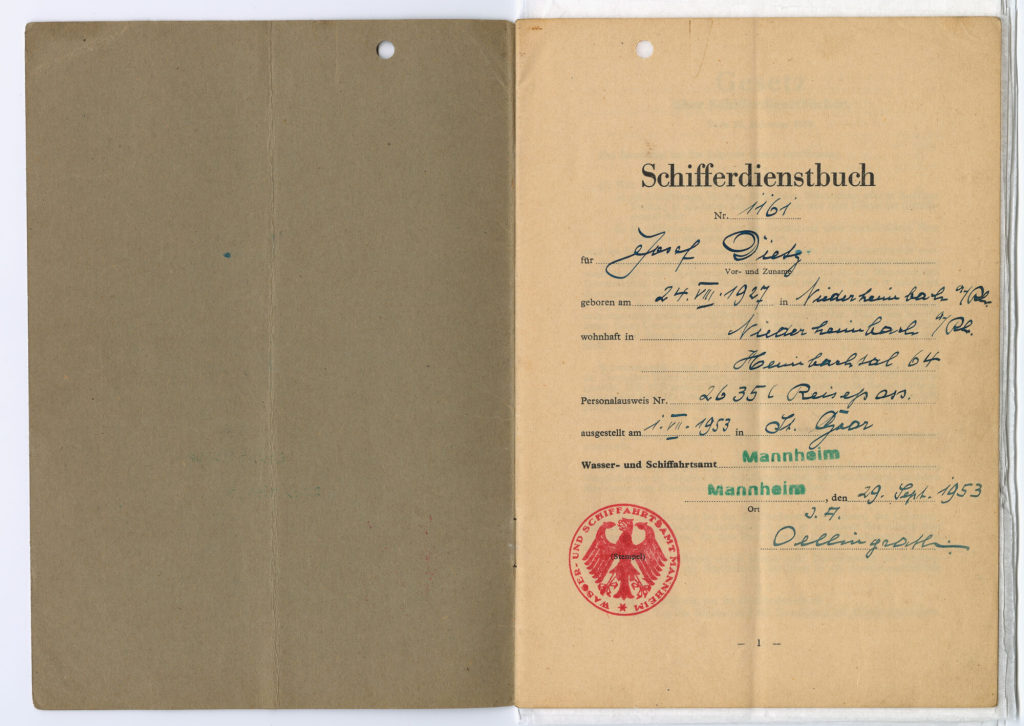 Schifferdienstbuch
Nr. 1161
für Josef Dietz
Vor- und Zuname
geboren am 24. VIII. 1927 in Niederheimbach a/Rh.
wohnhaft in Niederheimbach a/Rh.
Heimbachtal 64
Personalausweis Nr. 2635 Reisepass.
ausgestellt am 1. VII. 1953 in St. Goar
Wasser- und Schiffahrtsamt Mannheim
Mannheim, den 29. Sept. 1953
Ort
I. A.
WASSER- UND SCHIFFAHRTSAMT MANNHEIM
(Stempel)
— 1 —